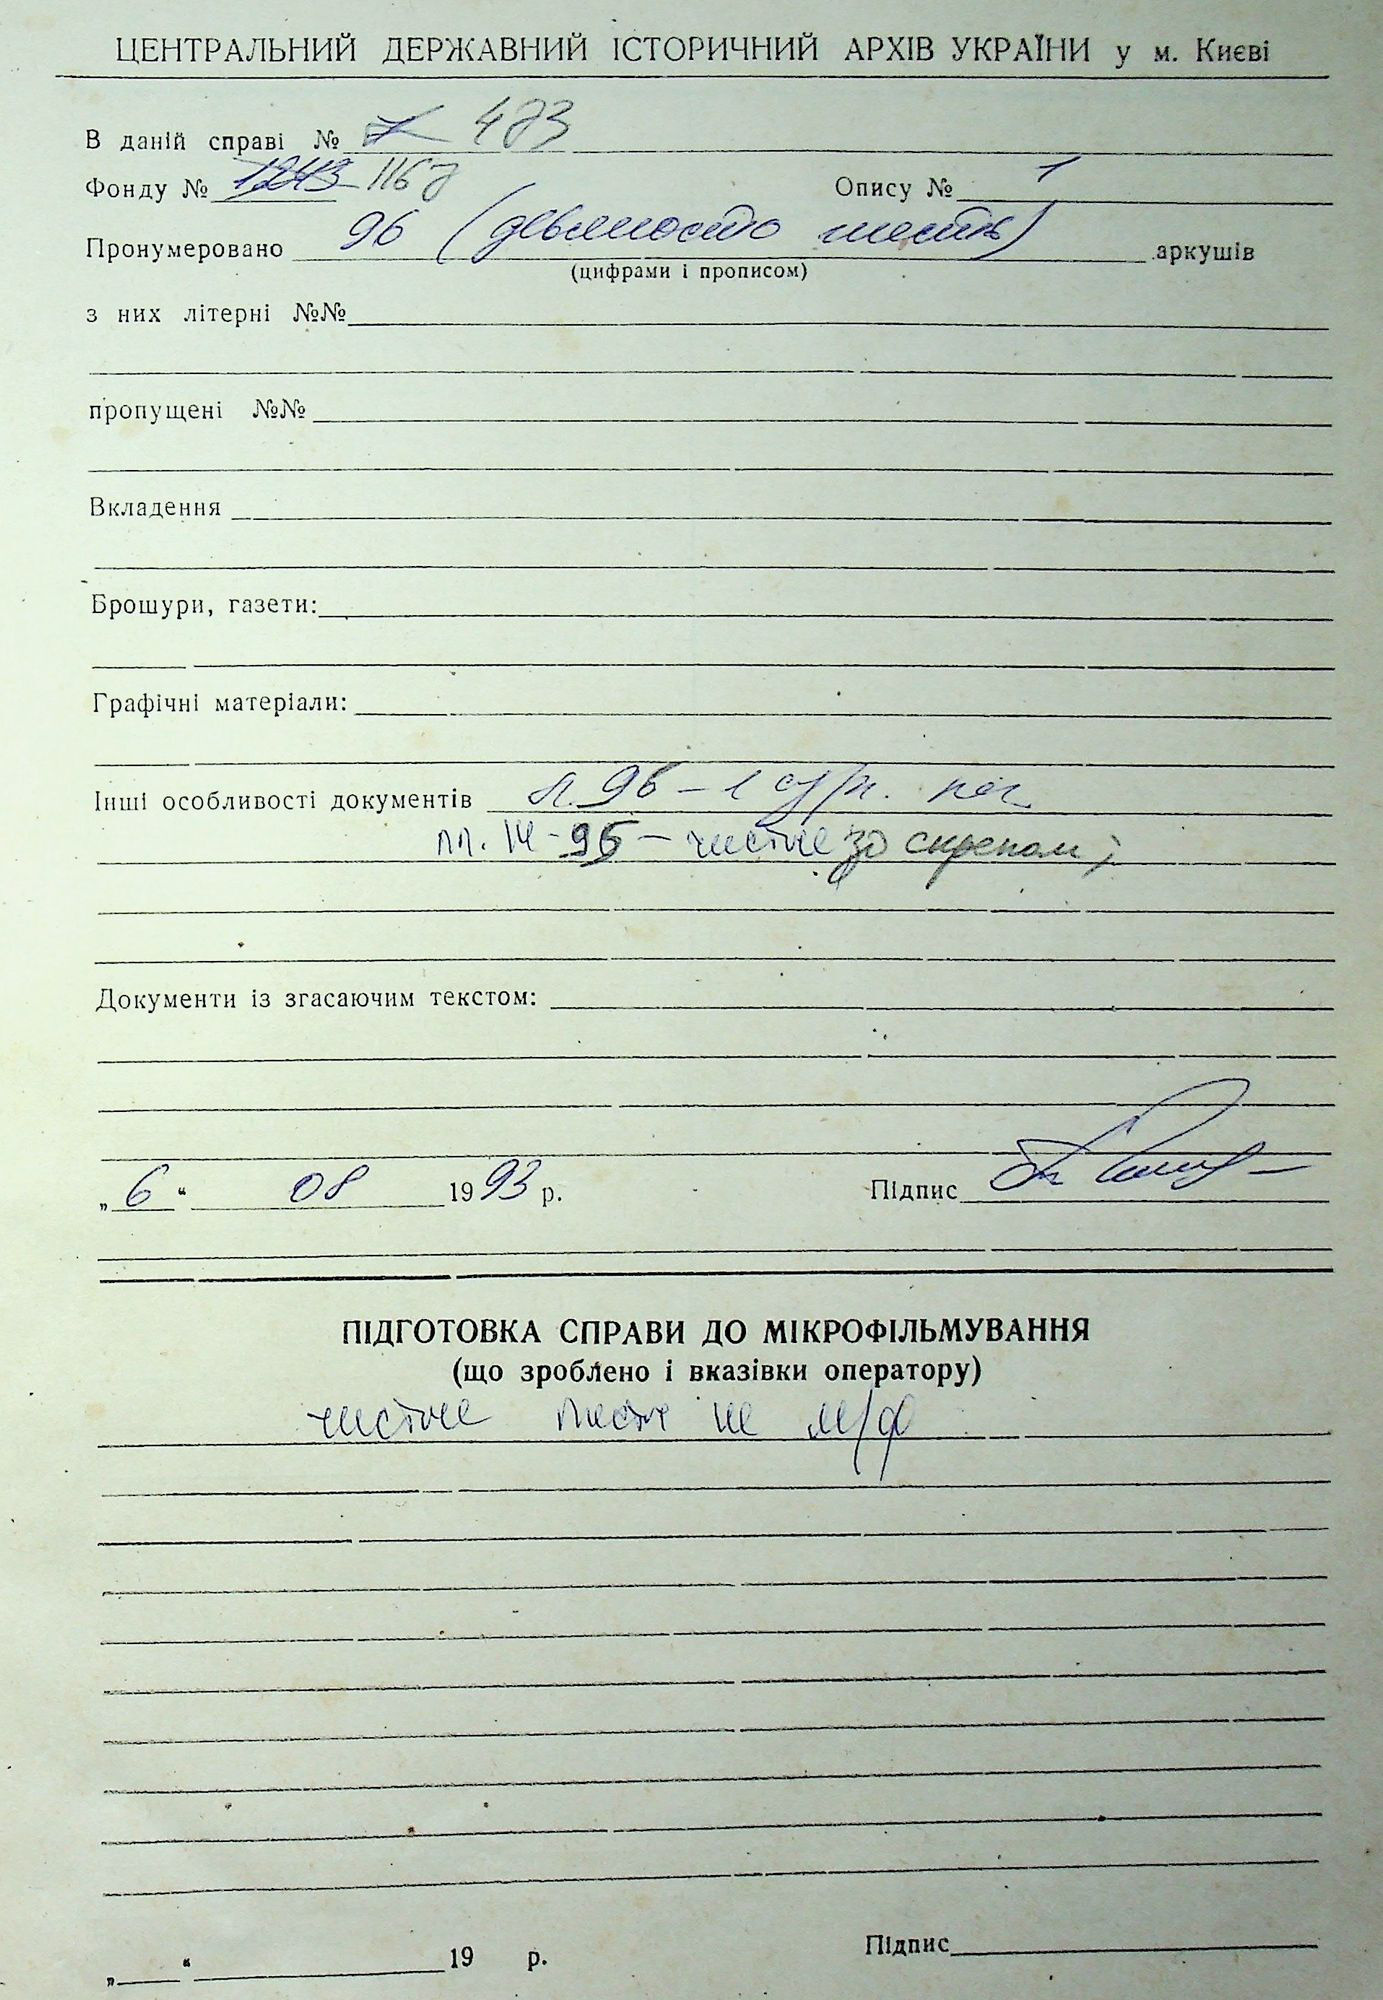 ЦЕНТРАЛЬНИЙ ДЕРЖАВНИЙ ІСТОРИЧНИЙ АРХІВ УКРАЇНИ у м. Києві
В даній справі № 473
Фонду № 1243 1167 Опису № 1
Пронумеровано 96 (девяносто шесть) аркушів
(цифрами і прописом)
з них літерні №№
пропущені №№
Вкладення
Брошури, газети:
Графічні матеріали:
Інші особливості документів л. 96 – 1
лл. 14-95 – чистые за скрепом;
Документи із згасаючим текстом:
„ 6 “ 08 1993 р. Підпис
ПІДГОТОВКА СПРАВИ ДО МІКРОФІЛЬМУВАННЯ
(що зроблено і вказівки оператору)
чистые листы не м/ф
„ “ 19 р. Підпис